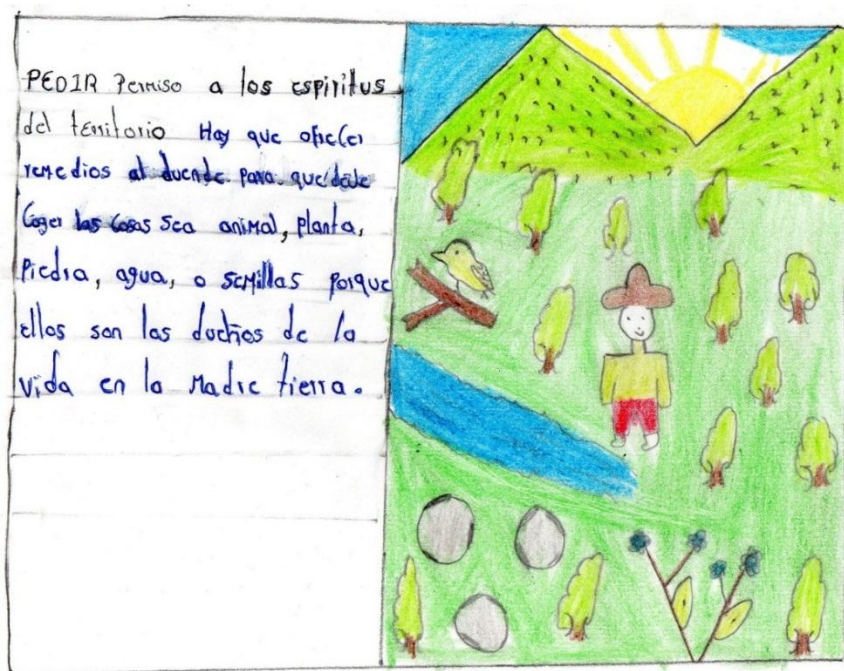 PEDIR Permiso a los espiritus
del territorio Hay que ofrecer
remedios al duende para que deje
Coger las cosas sea animal, planta,
Piedra, agua, o semillas porque
ellos son los dueños de la
vida en la Madre tierra.